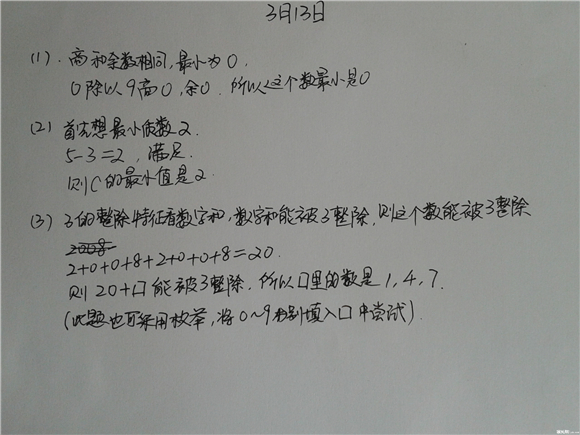 3月13日
(1).商和余数相同,最小为0.
0除以9商0,余0.所以这个数最小是0
(2)首先想最小质数2.
5-3=2,满足.
则C的最小值是2.
(3)3的整除特征看数字和,数字和能被3整除,则这个数能被3整除
2008
2+0+0+8+2+0+0+8=20.
则20+口能被3整除.所以口里的数是1,4,7.
(此题也可采用枚举,将0~9分别填入口中尝试).